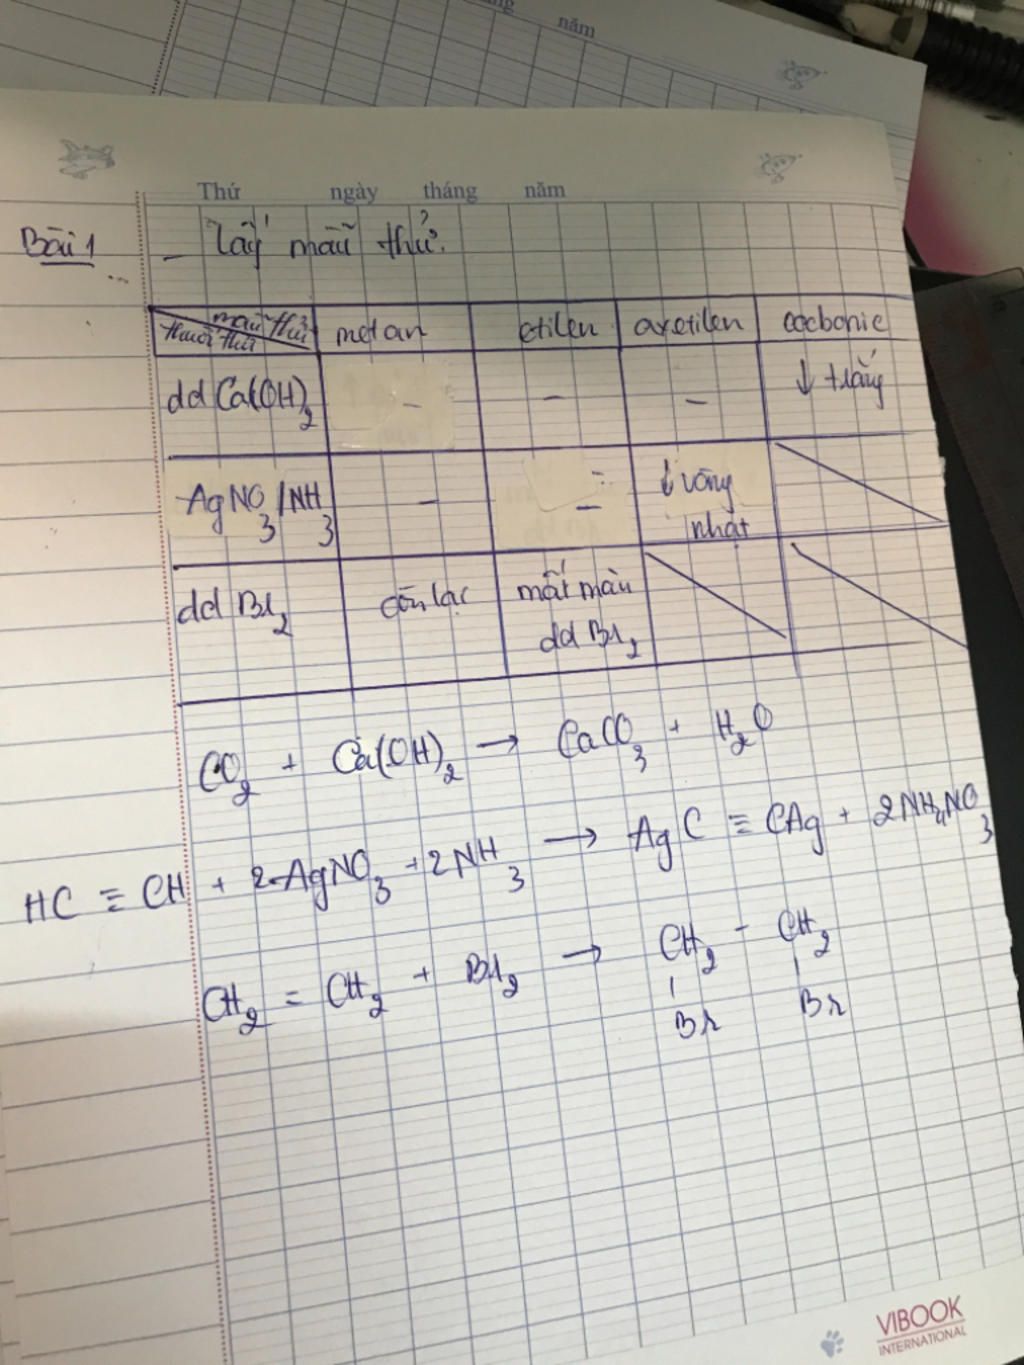 năm
Thứ ngày tháng năm
Bài 1 - Lấy mẫu thử.
mẫu thử
thuốc thử
metan etilen axetilen cacbonic
dd Ca(OH)2 - - - ↓ trắng
AgNO3/NH3 - - ↓ vàng nhạt
dd Br2 còn lại mất màu dd Br2
CO2 + Ca(OH)2 → CaCO3 + H2O
HC ≡ CH + 2AgNO3 + 2NH3 → AgC ≡ CAg + 2NH4NO3
CH2 = CH2 + Br2 → CH2 - CH2
Br Br
VIBOOK
INTERNATIONAL